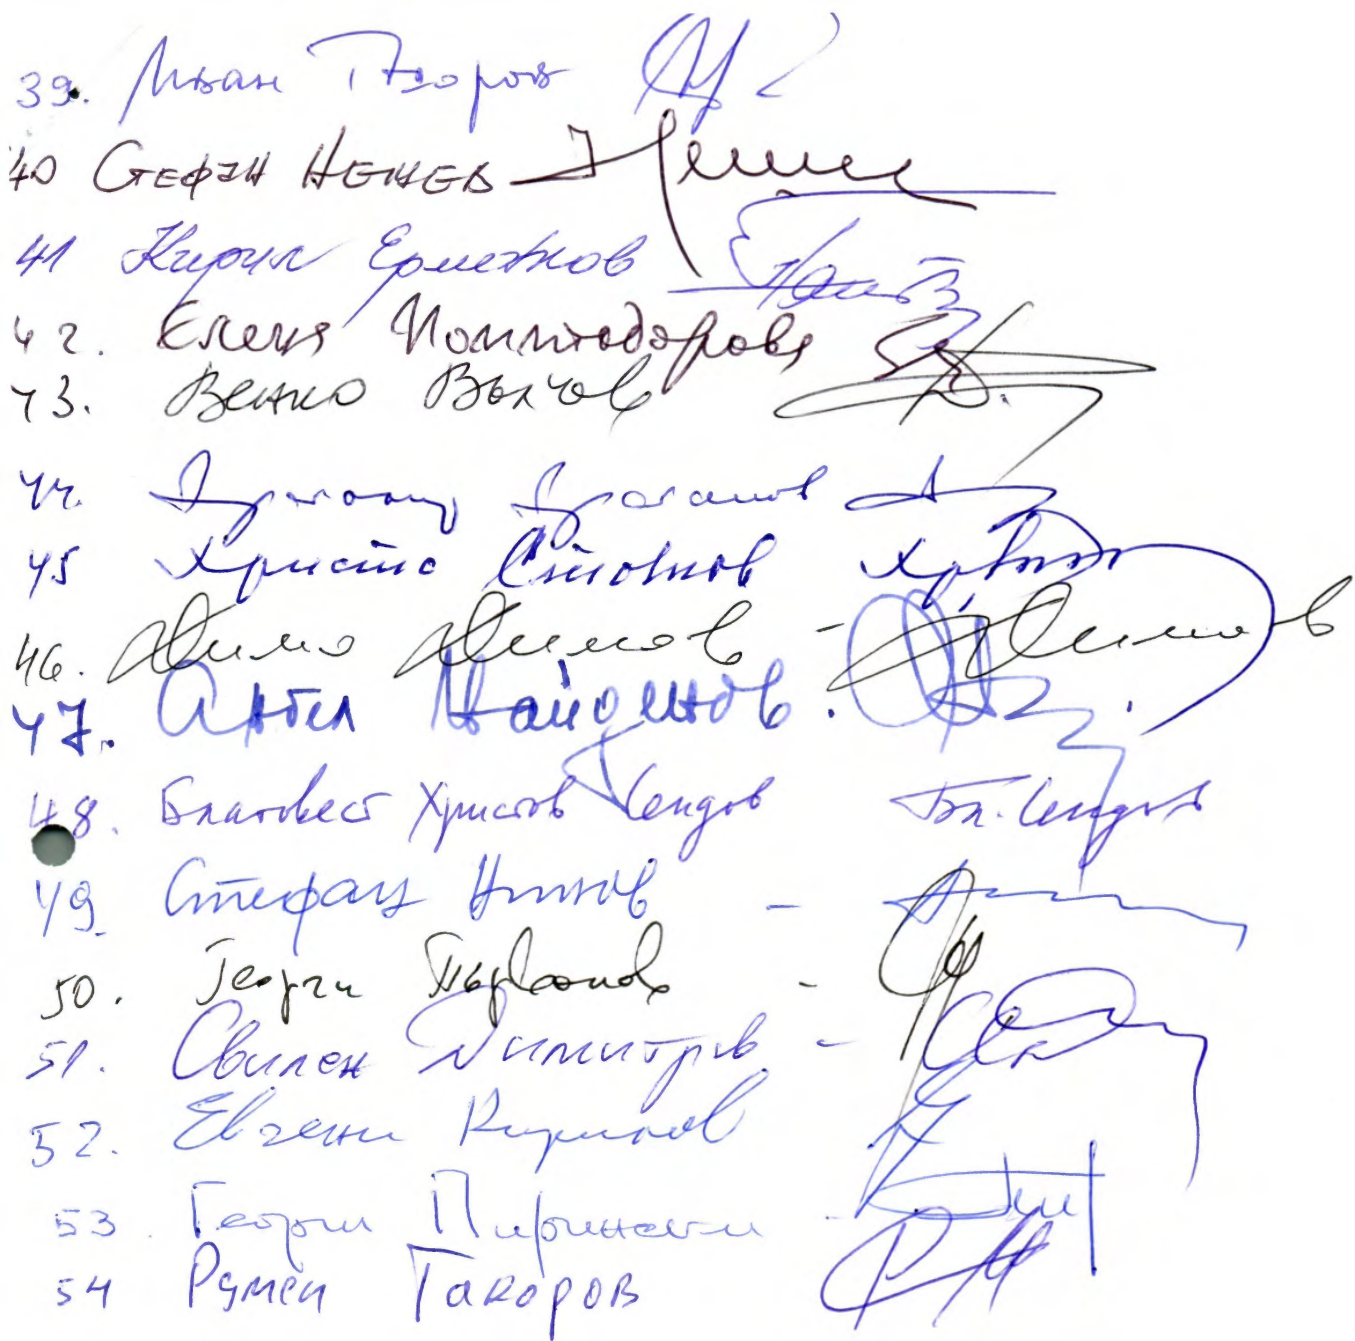 39. Иван Тодоров
40 СТЕФАН НЕШЕВ
41 Кирил Ерменков
42. Елена Поптодорова
43. Венко Вълчев
44. Драгомир Драганов
45 Христо Стоянов
46. Димо Димов - Димов
47. Ангел Найденов.
48. Благовест Христов Сендов Бл. Сендов
49. Стефан Нинов -
50. Георги Първанов -
51. Свилен Димитров -
52. Евгени Кирилов
53. Георги Пирински -
54 Румен Такоров